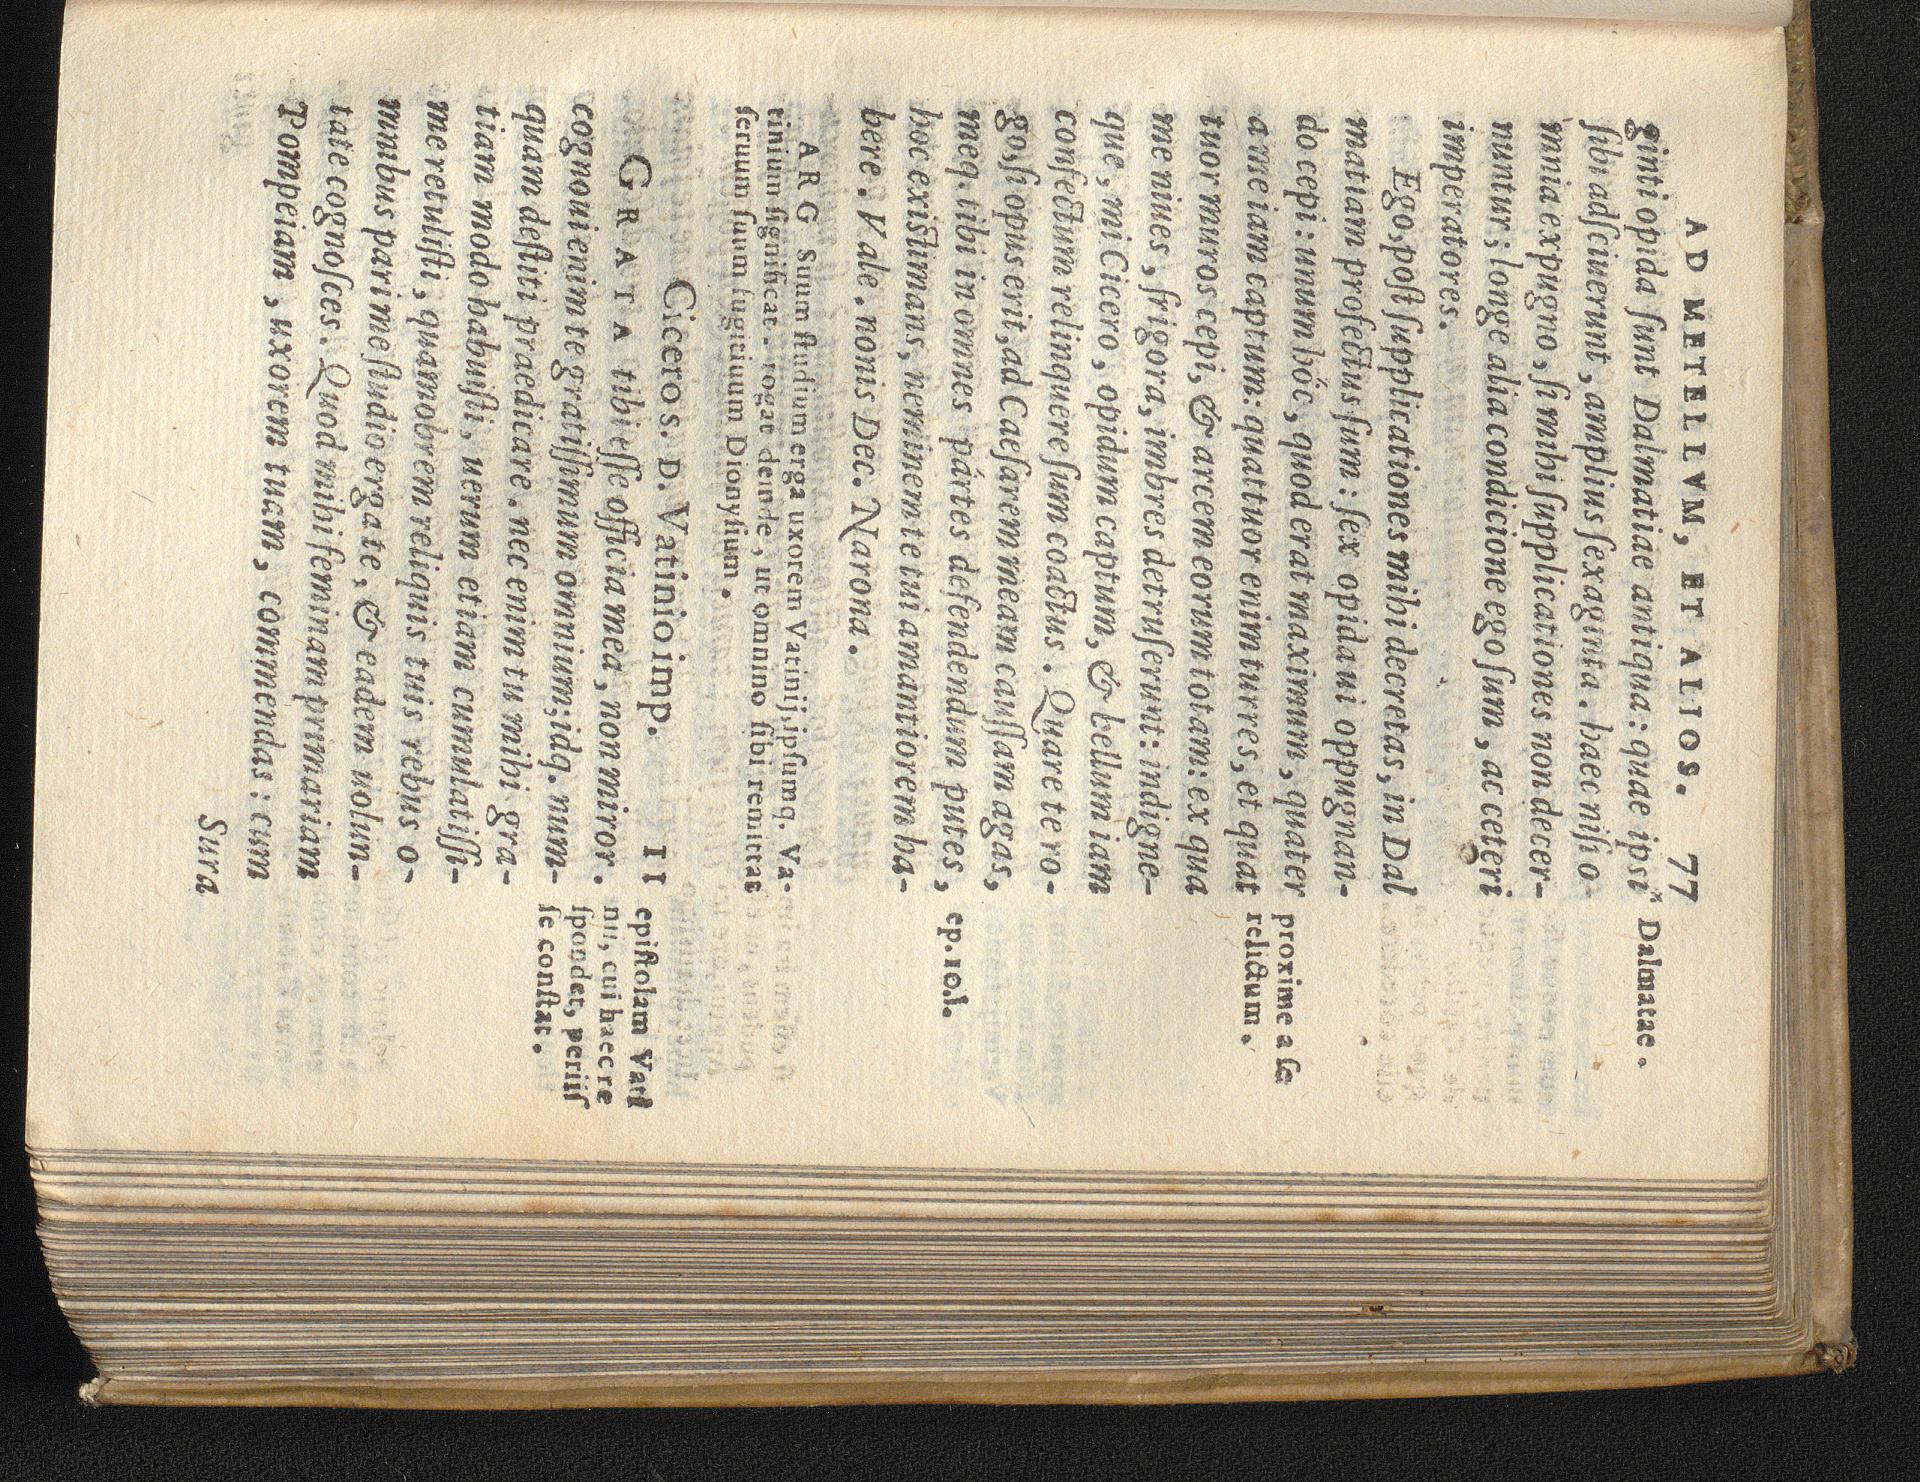 AD METELLVM, ET ALIOS. 77
ginti opida sunt Dalmatiae antiqua: quae ipsi
Dalmatae.
sibi adsciuerunt, amplius sexaginta. haec nisi o-
mnia expugno, si mihi supplicationes non decer-
nuntur; longe alia condicione ego sum, ac ceteri
imperatores.
Ego, post supplicationes mihi decretas, in Dal
matiam profectus sum: sex opida ui oppugnan-
do cepi: unum hŏc, quod erat maximum, quater
proxime a se
a me iam captum: quattuor enim turres, et quat
relictum.
tuor muros cepi, & arcem eorum totam: ex qua
me niues, frigora, imbres detruserunt: indigne-
que, mi Cicero, opidum captum, & bellum iam
confectum relinquere sum coactus. Quare te ro-
go, si opus erit, ad Caesarem meam caussam agas,
meq. tibi in omnes pártes defendendum putes,
ep. 10.l.
hoc existimans, neminem te tui amantiorem ha-
bere. Vale. nonis Dec. Narona.
ARG Suum studium erga uxorem Vatinij, ipsumq. Va-
tinium significat. rogat deinde, ut omnino sibi remittat
seruum suum fugitiuum Dionysium.
Cicero s. D. Vatinio imp. II
epistolam Vati
GRATA tibi esse officia mea, non miror.
nii, cui haec re
cognoui enim te gratissimum omnium; idq. num-
spondet, periis
quam destiti praedicare. nec enim tu mihi gra-
se constat.
tiam modo habuisti, uerum etiam cumulatissi-
me retulisti, quamobrem reliquis tuis rebus o-
mnibus pari me studio erga te, & eadem uolun-
tate cognosces. Quod mihi feminam primariam
Pompeiam, uxorem tuam, commendas: cum
Sura